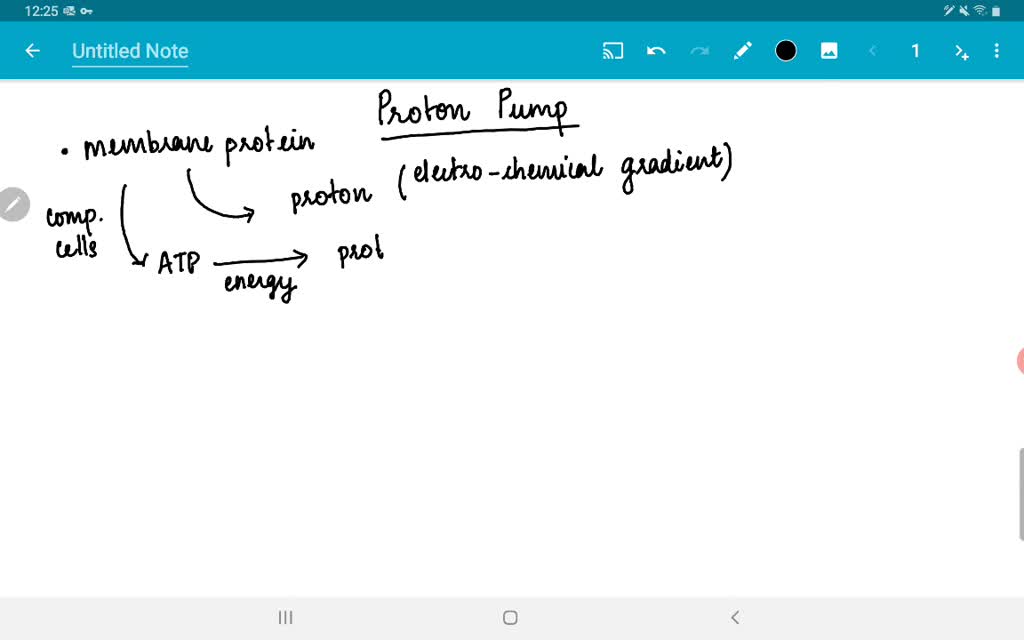 12:25
Untitled Note
1
Proton Pump
• membrane protein
proton (electro-chemical gradient)
comp.
cells
ATP
energy
prot